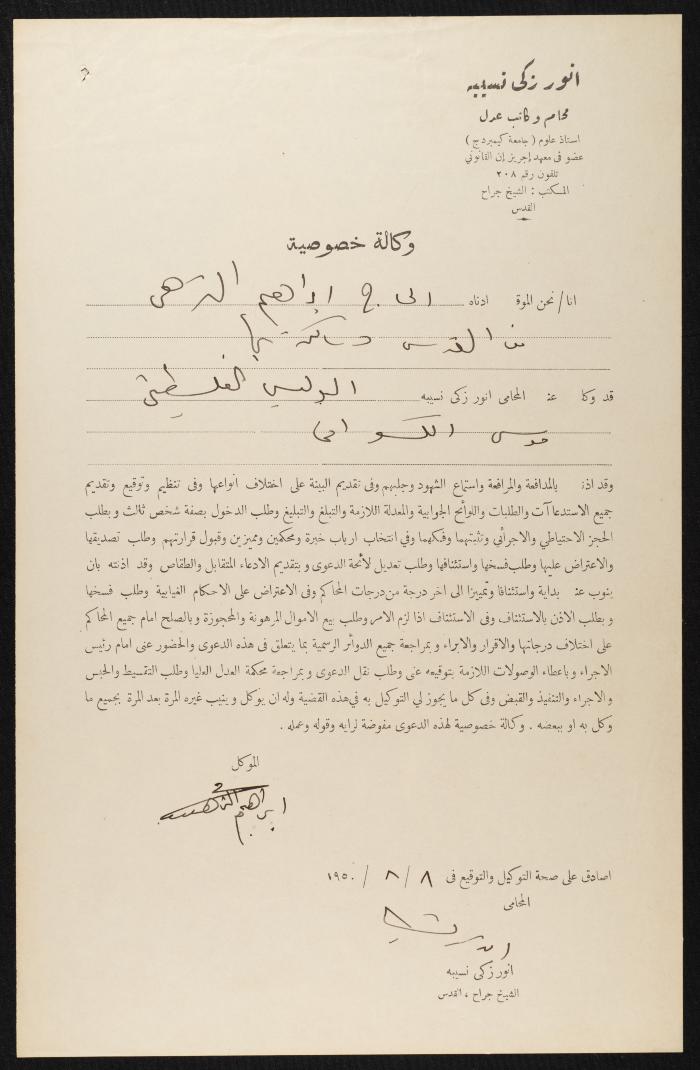 انور زكي نسيبه
محام وكاتب عدل
استاذ علوم ( جامعة كيمبردج )
عضو في معهد إجريز إن القانوني
تلفون رقم ٢٠٨
المكتب : الشيخ جراح
القدس
وكالة خصوصية
انا/نحن الموقع ادناه الحاج ابراهيم
من القدس وساكن بها
قد وكلـ عنـ المحامى انور زكى نسيبه
موسى
وقد اذنـ بالمدافعة والمرافعة واستماع الشهود وجلبهم وفى تقديم البينة على اختلاف انواعها وفى تنظيم وتوقيع وتقديم
جميع الاستدعاآت والطلبات واللوائح الجوابية والمعدلة اللازمة والتبلغ والتبليغ وطلب الدخول بصفة شخص ثالث وبطلب
الحجز الاحتياطي والاجرائي وتثبيتهما وفكهما وفي انتخاب ارباب خبرة ومحكمين ومميزين وقبول قرارتهم وطلب تصديقها
والاعتراض عليها وطلب فسخها واستئنافها وطلب تعديل لائحة الدعوى وبتقديم الادعاء المتقابل والطقاص وقد اذنته بان
ينوب عنـ بداية واستئنافا وتمييزا الى اخر درجة من درجات المحاكم وفى الاعتراض على الاحكام الغيابية وطلب فسخها
وبطلب الاذن بالاستئناف وفى الاستئناف اذا لزم الامر وطلب بيع الاموال المرهونة والمحجوزة وبالصلح امام جميع المحاكم
على اختلاف درجاتها والاقرار والابراء وبمراجعة جميع الدوائر الرسمية بما يتعلق فى هذه الدعوى والحضور عنى امام رئيس
الاجراء وباعطاء الوصولات اللازمة بتوقيعه عنى وطلب نقل الدعوى وبمراجعة محكمة العدل العليا وطلب التقسيط والحبس
والاجراء والتنفيذ والقبض وفى كل ما يجوز لي التوكيل به في هذه القضية وله ان يوكل وينيب غيره المرة بعد المرة بجميع ما
وكل به او ببعضه . وكالة خصوصية لهذه الدعوى مفوضة لرايه وقوله وعمله .
الموكل
ابراهيم
اصادق على صحة التوكيل والتوقيع فى ٨ / ٨ / ١٩٥٠
المحامى
انور زكى نسيبه
الشيخ جراح ، القدس